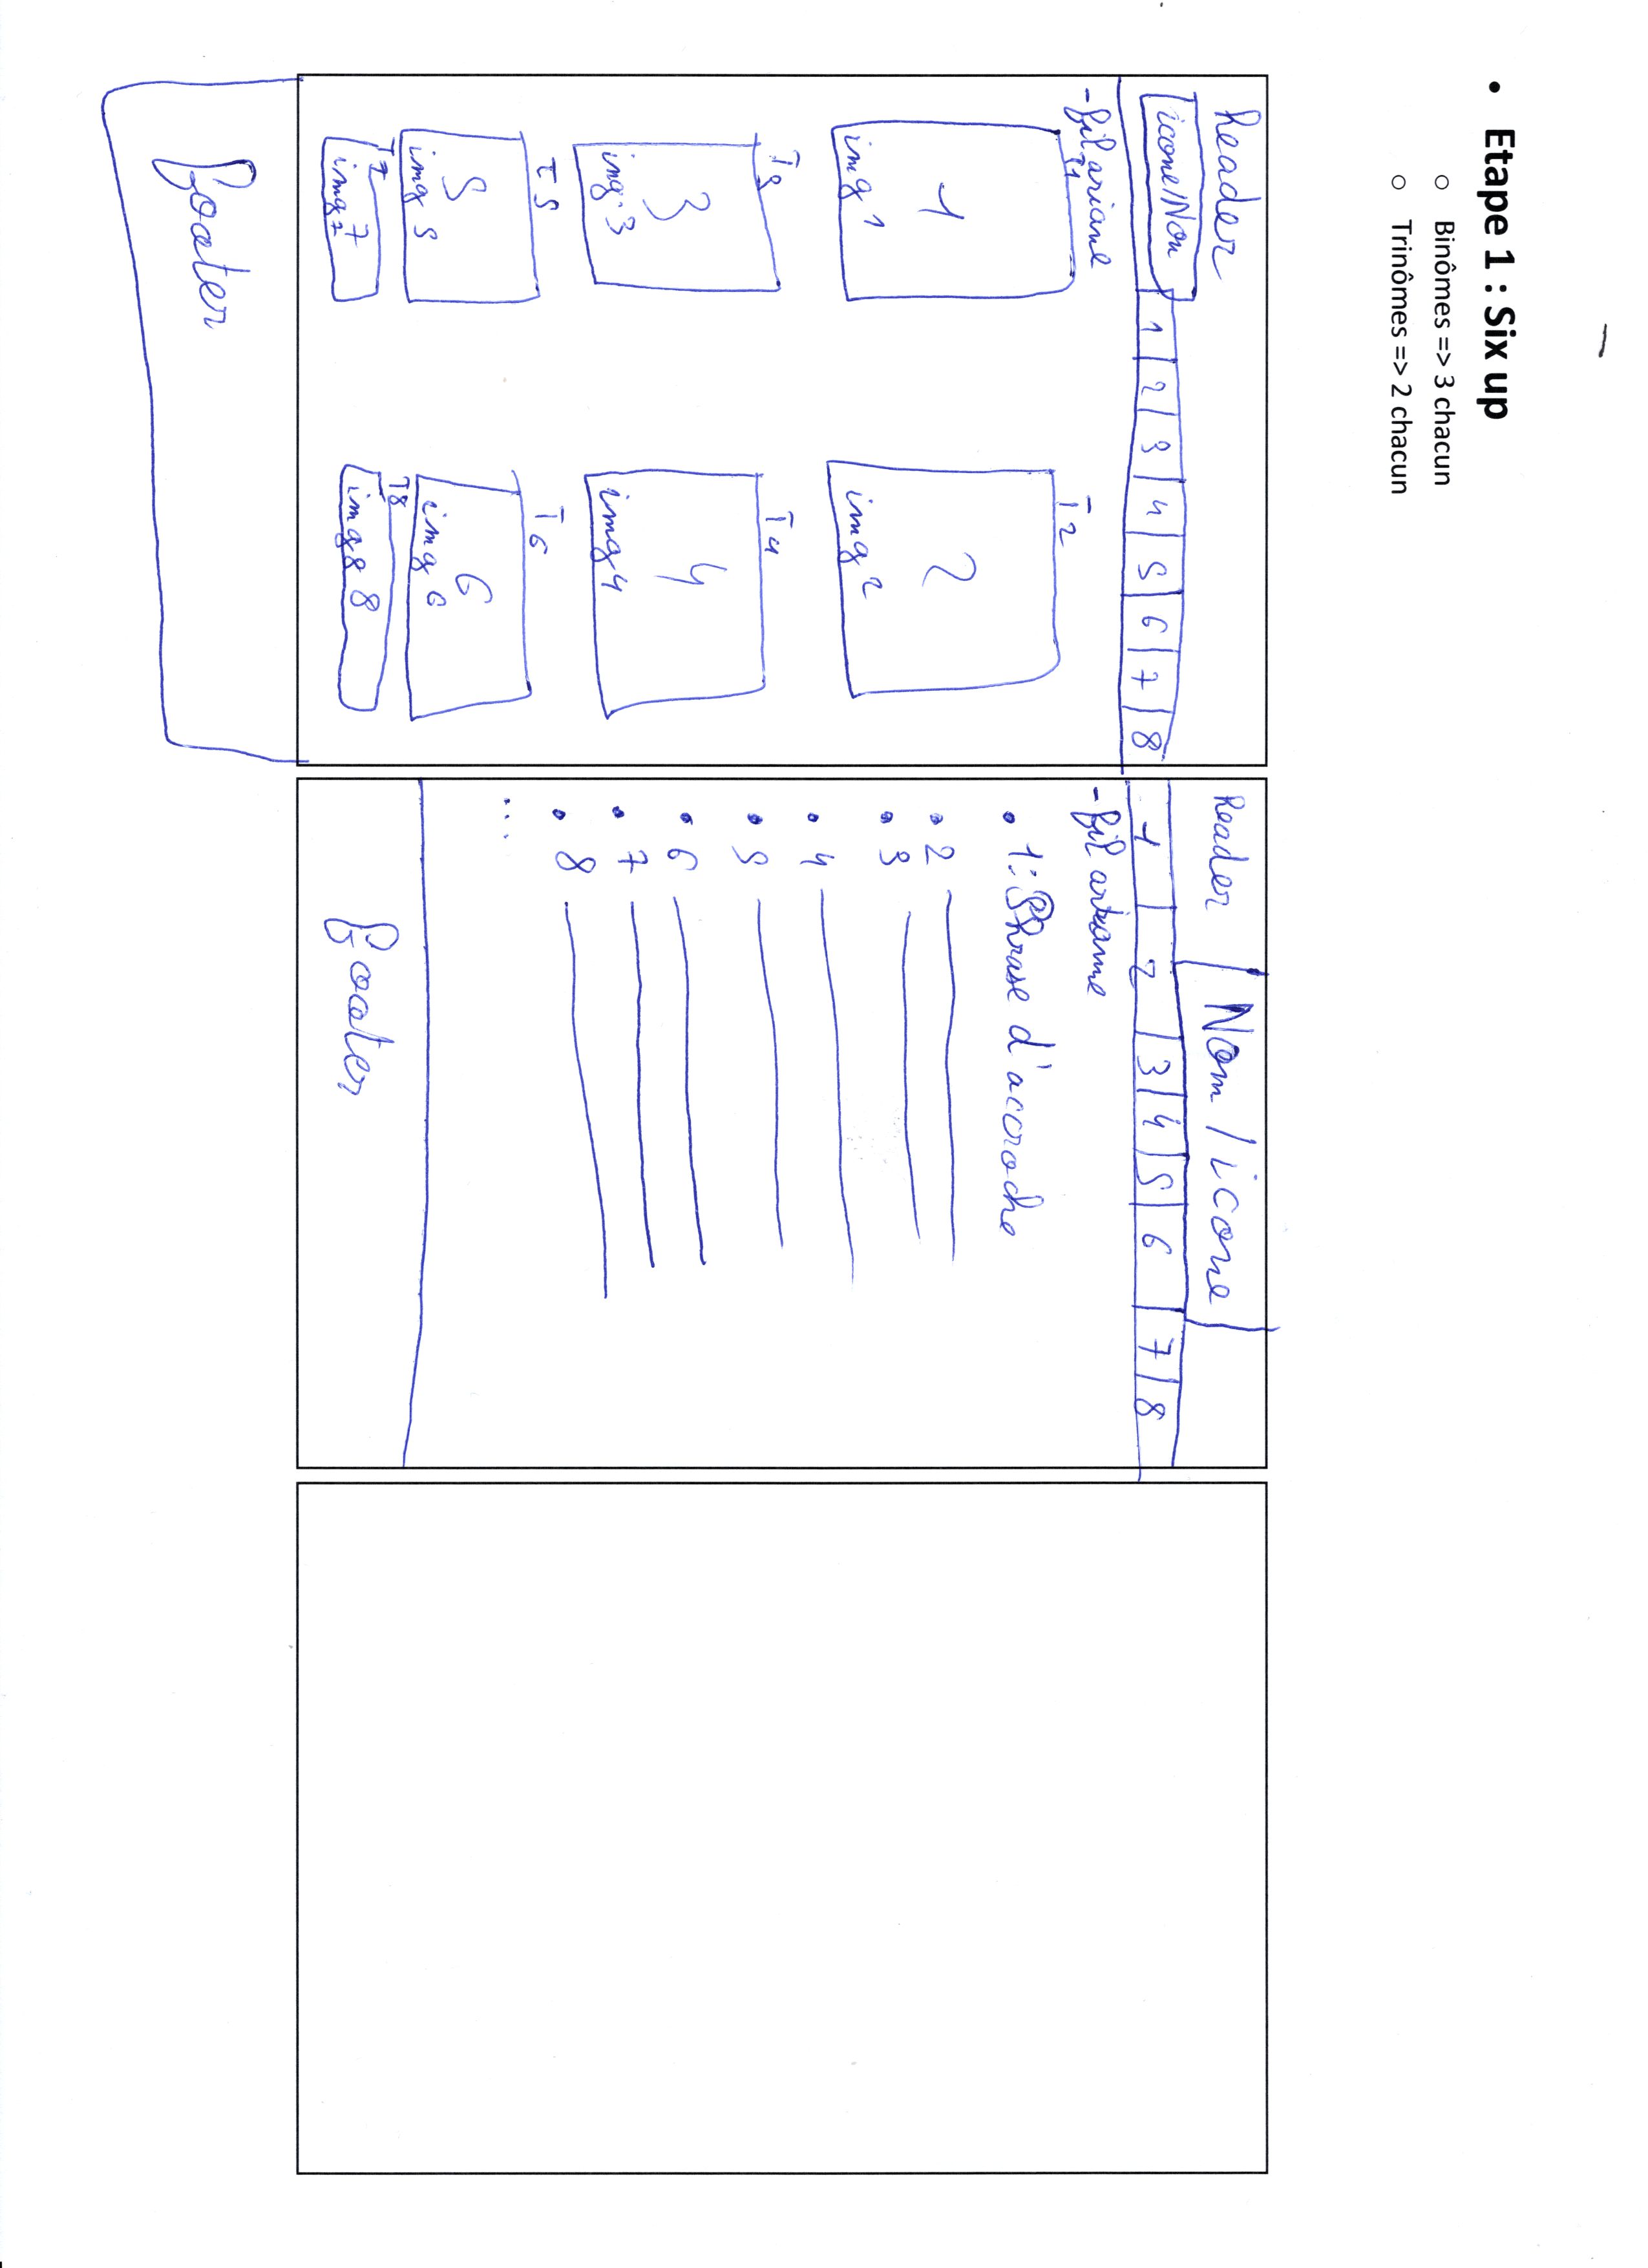 • Etape 1 : Six up
o Binômes => 3 chacun
o Trinômes => 2 chacun
header
icone/Nom
1 2 3 4 5 6 7 8
- fil ariane
T1 T2
1 2
img 1 img 2
T3 T4
3 4
img 3 img 4
T5 T6
5 6
img 5 img 6
T7 T8
7 8
img 7 img 8
footer
header Nom / icone
1 2 3 4 5 6 7 8
- fil
• 1: Phrase d'accroche
• 2
• 3
• 4
• 5
• 6
• 7
• 8
...
footer